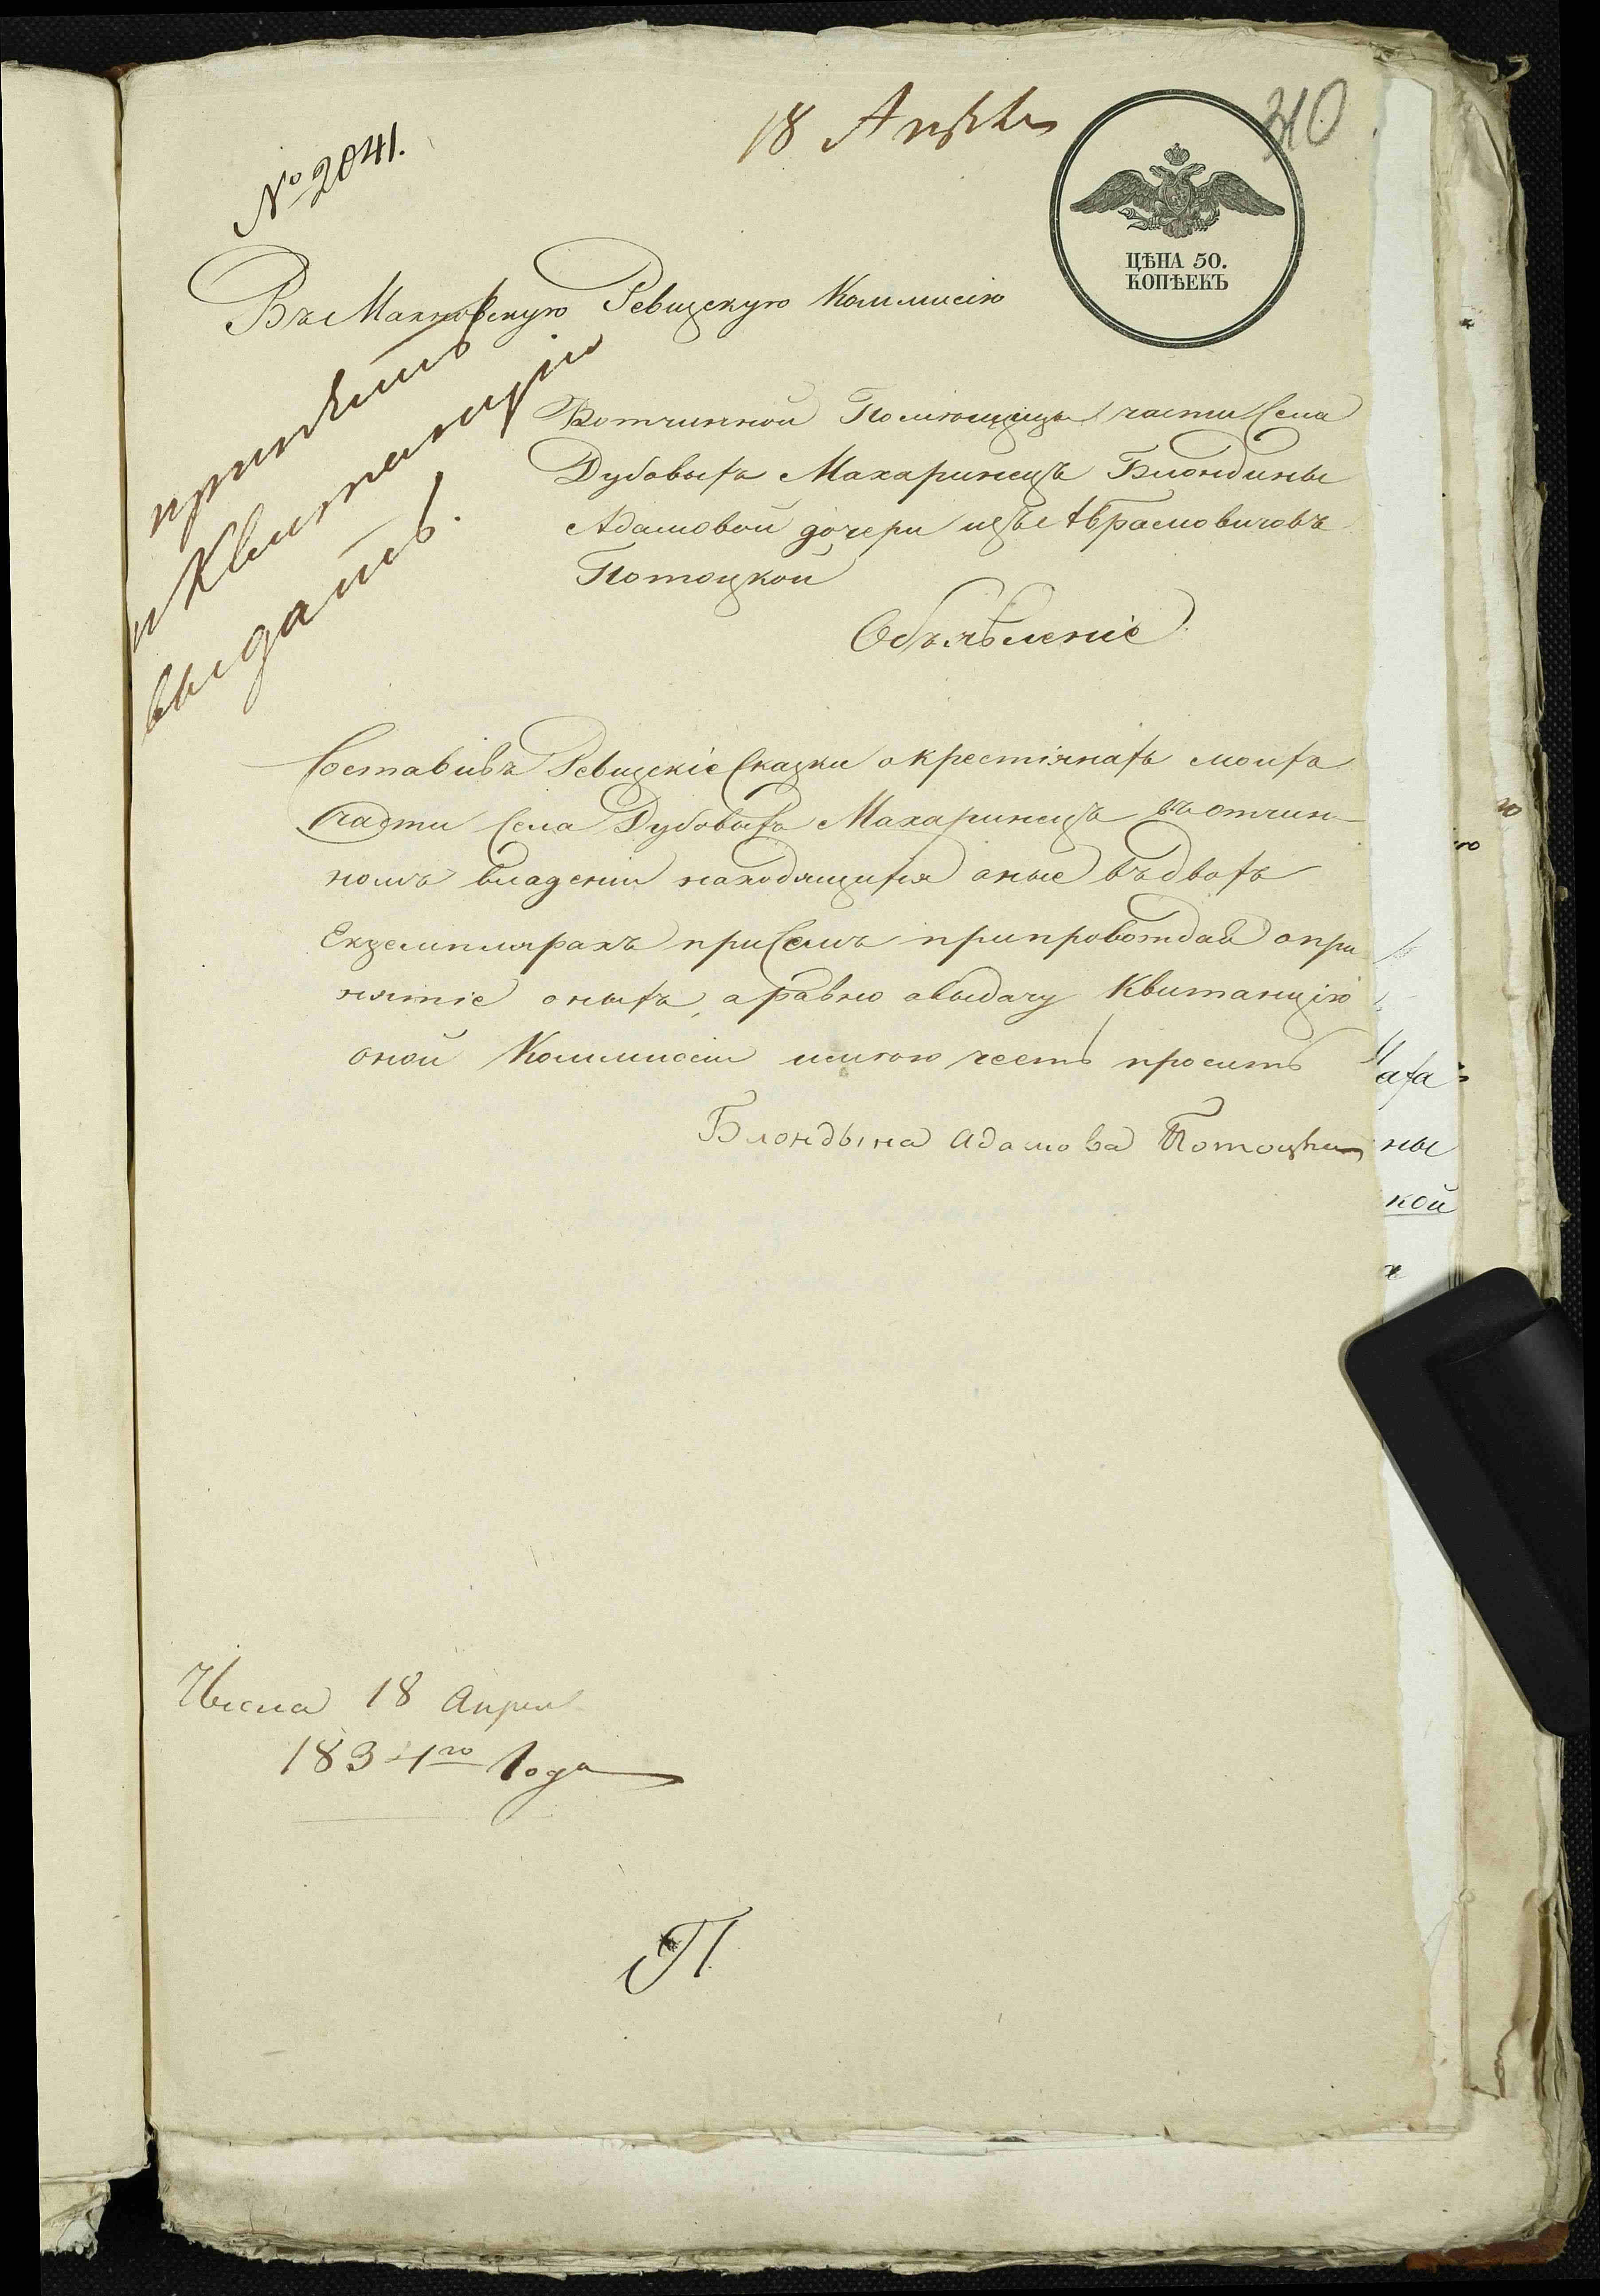 18 Апрѣля
310
№ 2041.
ЦѢНА 50.
КОПѢЕКЪ
Въ Махновскую Ревизскую Коммисію
принять
и Квитанцію
выдать.
Вотчинной Помѣщицы части Села
Дубовыхъ Махаринецъ Блондины
Адамовой дочери изъ Абрамовичовъ
Потоцкой
Объявленіе
Составивъ Ревизскіе Сказки о крестіянахъ моихъ
части Села Дубовыхъ Махаринецъ въ отчин-
номъ владеніи находящихся оные въ двохъ
Екземплярахъ при Семъ припровождая о при
нятіе оныхъ, а равно о выдачу Квитанцію
оной Коммисіи имѣю честь просить
Блондына Адамова Потоцка
Числа 18 Апреля
1834го Года
П
ахъ
ны
кой